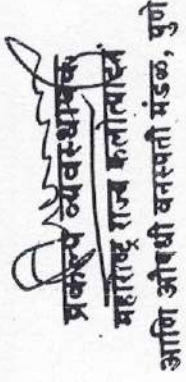 प्रकल्प व्यवस्थापक
महाराष्ट्र राज्य फलोत्पादन
आणि औषधी वनस्पती मंडळ, पुणे